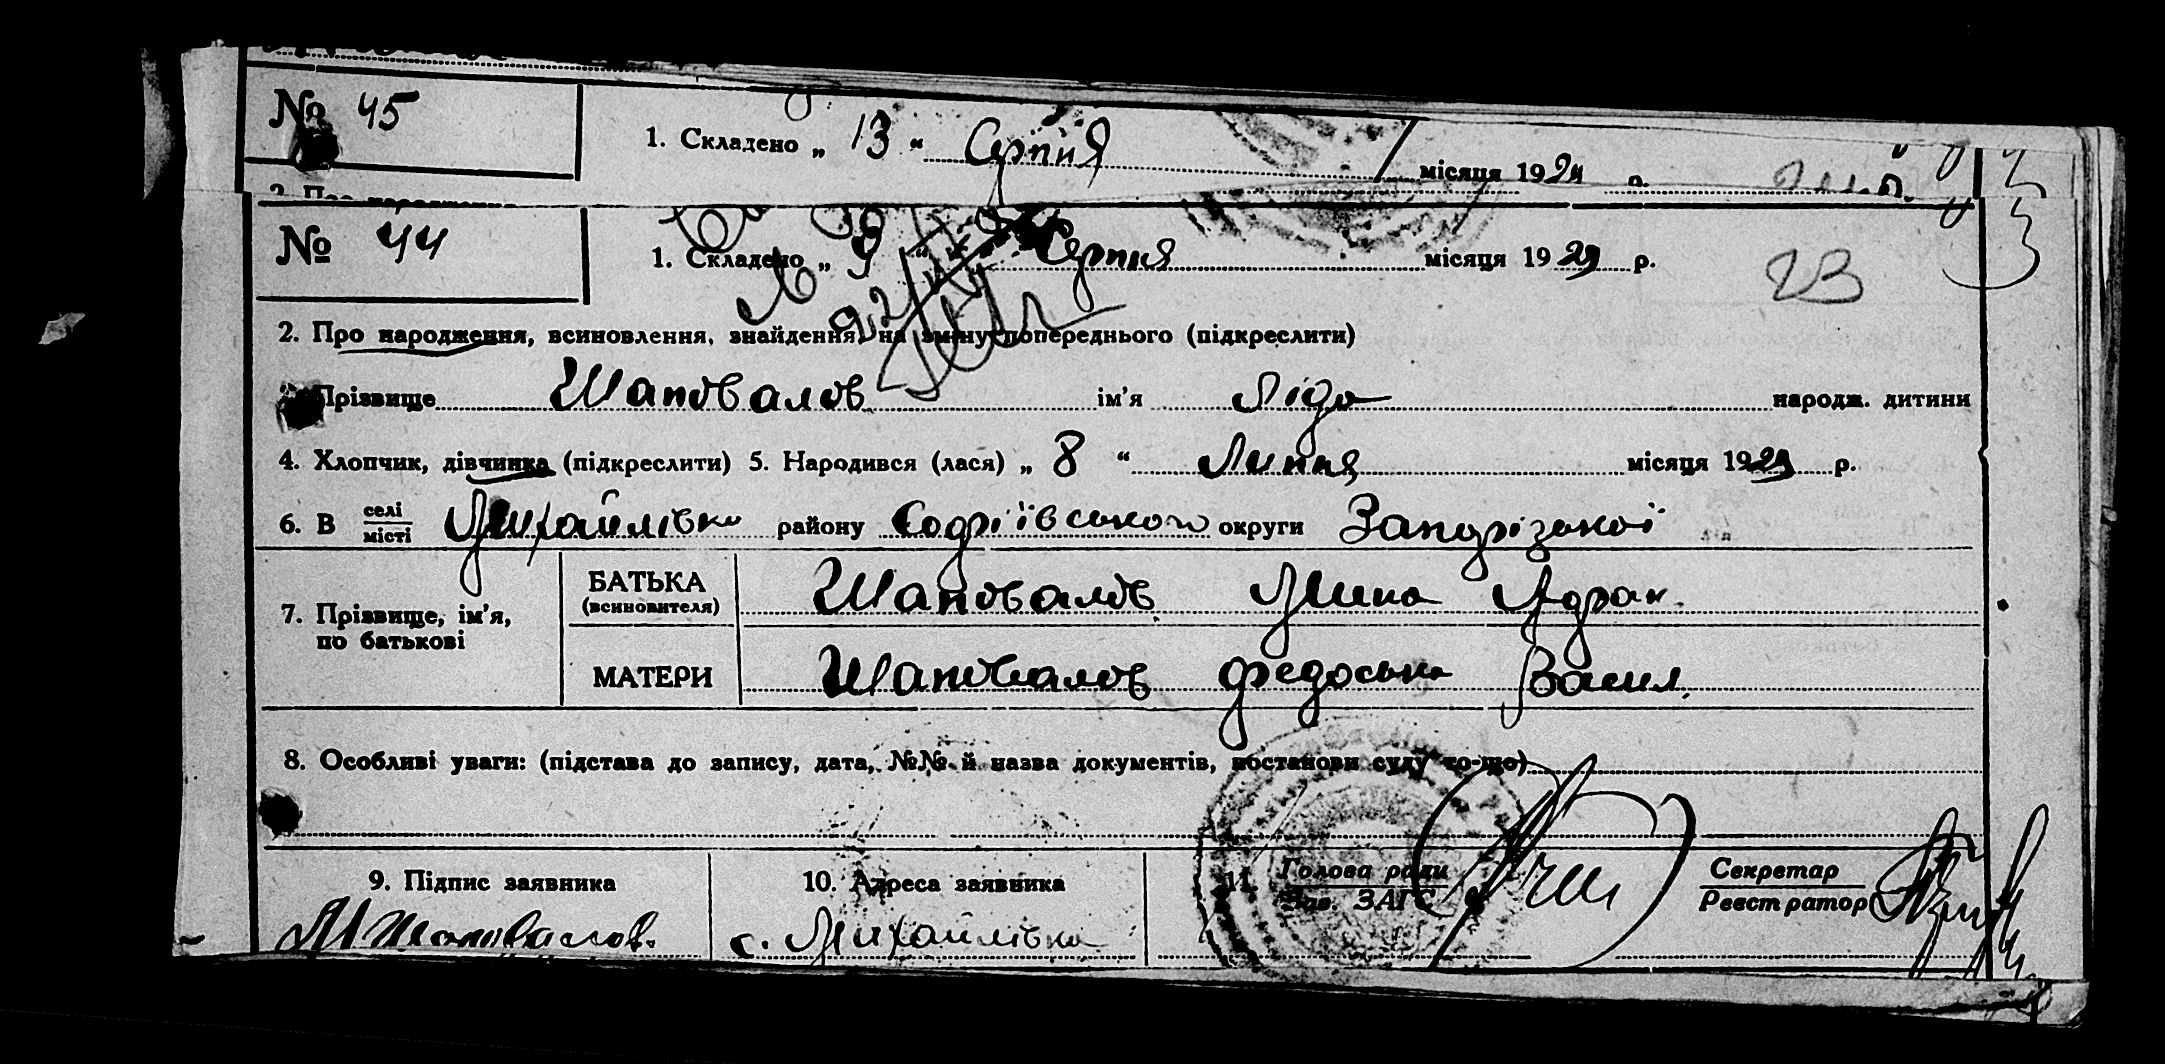 № 45
1. Складено „ 13 “ Серпня місяця 1929 р.
№ 44
1. Складено „ 9 “ Серпня місяця 1929 р.
23
2. Про народження, всиновлення, знайдення, на зміну попереднього (підкреслити)
Прізвище Шаповалов ім'я Ліда народж. дитини
4. Хлопчик, дівчинка (підкреслити) 5. Народився (лася) „ 8 “ Липня місяця 1929 р.
6. В селі/місті Михайлівки району Софіївського округи Запорізької
7. Прізвище, ім'я, по батькові
БАТЬКА (всиновителя) Шаповалов Мина Адрак.
МАТЕРИ Шаповалов Федоська Васил.
8. Особливі уваги: (підстава до запису, дата, №№ й назва документів, постанови суду то-що)
9. Підпис заявника
10. Адреса заявника
11. Голова ради / Зав. ЗАГС
Секретар / Реєстратор
М Шаповалов.
с. Михайлівка